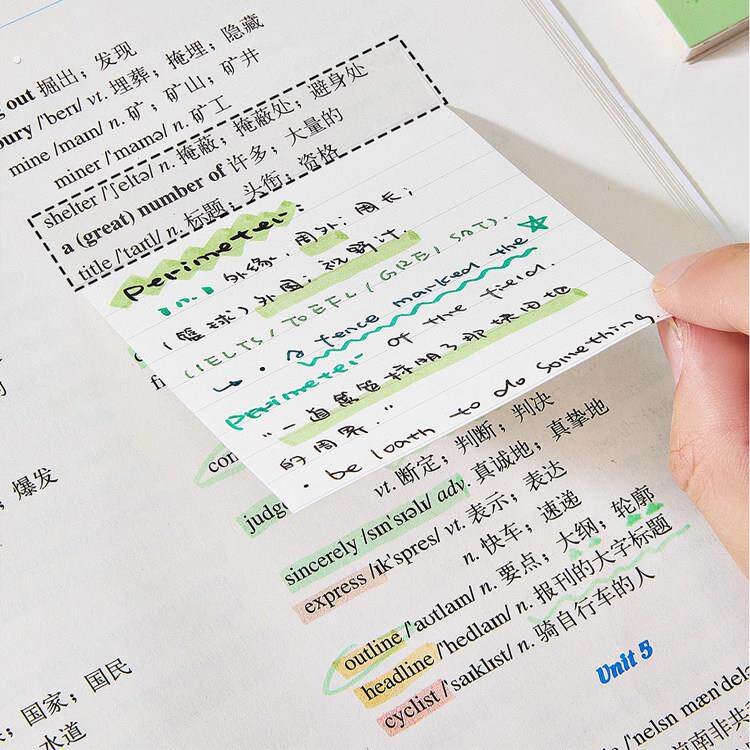 out 掘出；发现
bury /'berɪ/ vt. 埋葬；掩埋；隐藏
mine /maɪn/ n. 矿；矿山；矿井
miner /'maɪnə/ n. 矿工
shelter /'ʃeltə/ n. 掩蔽；掩蔽处；避身处
a (great) number of 许多；大量的
title /'taɪtl/ n. 标题；头衔；资格
Perimeter:
[n.] 外缘，周外；周长；
(篮球) 外围；视野计.
(IELTS/TOEFL/GRE/SAT).
a fence marked the
perimeter of the field.
"一道篱笆标明了那块田地
的周界."
· be loath to do something.
con
judg
vt. 断定；判断；判决
sincerely /sɪn'sɪəlɪ/ adv. 真诚地；真挚地
express /ɪk'spres/ vt. 表示；表达
n. 快车；速递
outline /'aʊtlaɪn/ n. 要点；大纲；轮廓
headline /'hedlaɪn/ n. 报刊的大字标题
cyclist /'saɪklɪst/ n. 骑自行车的人
Unit 5
爆发
国家；国民
水道